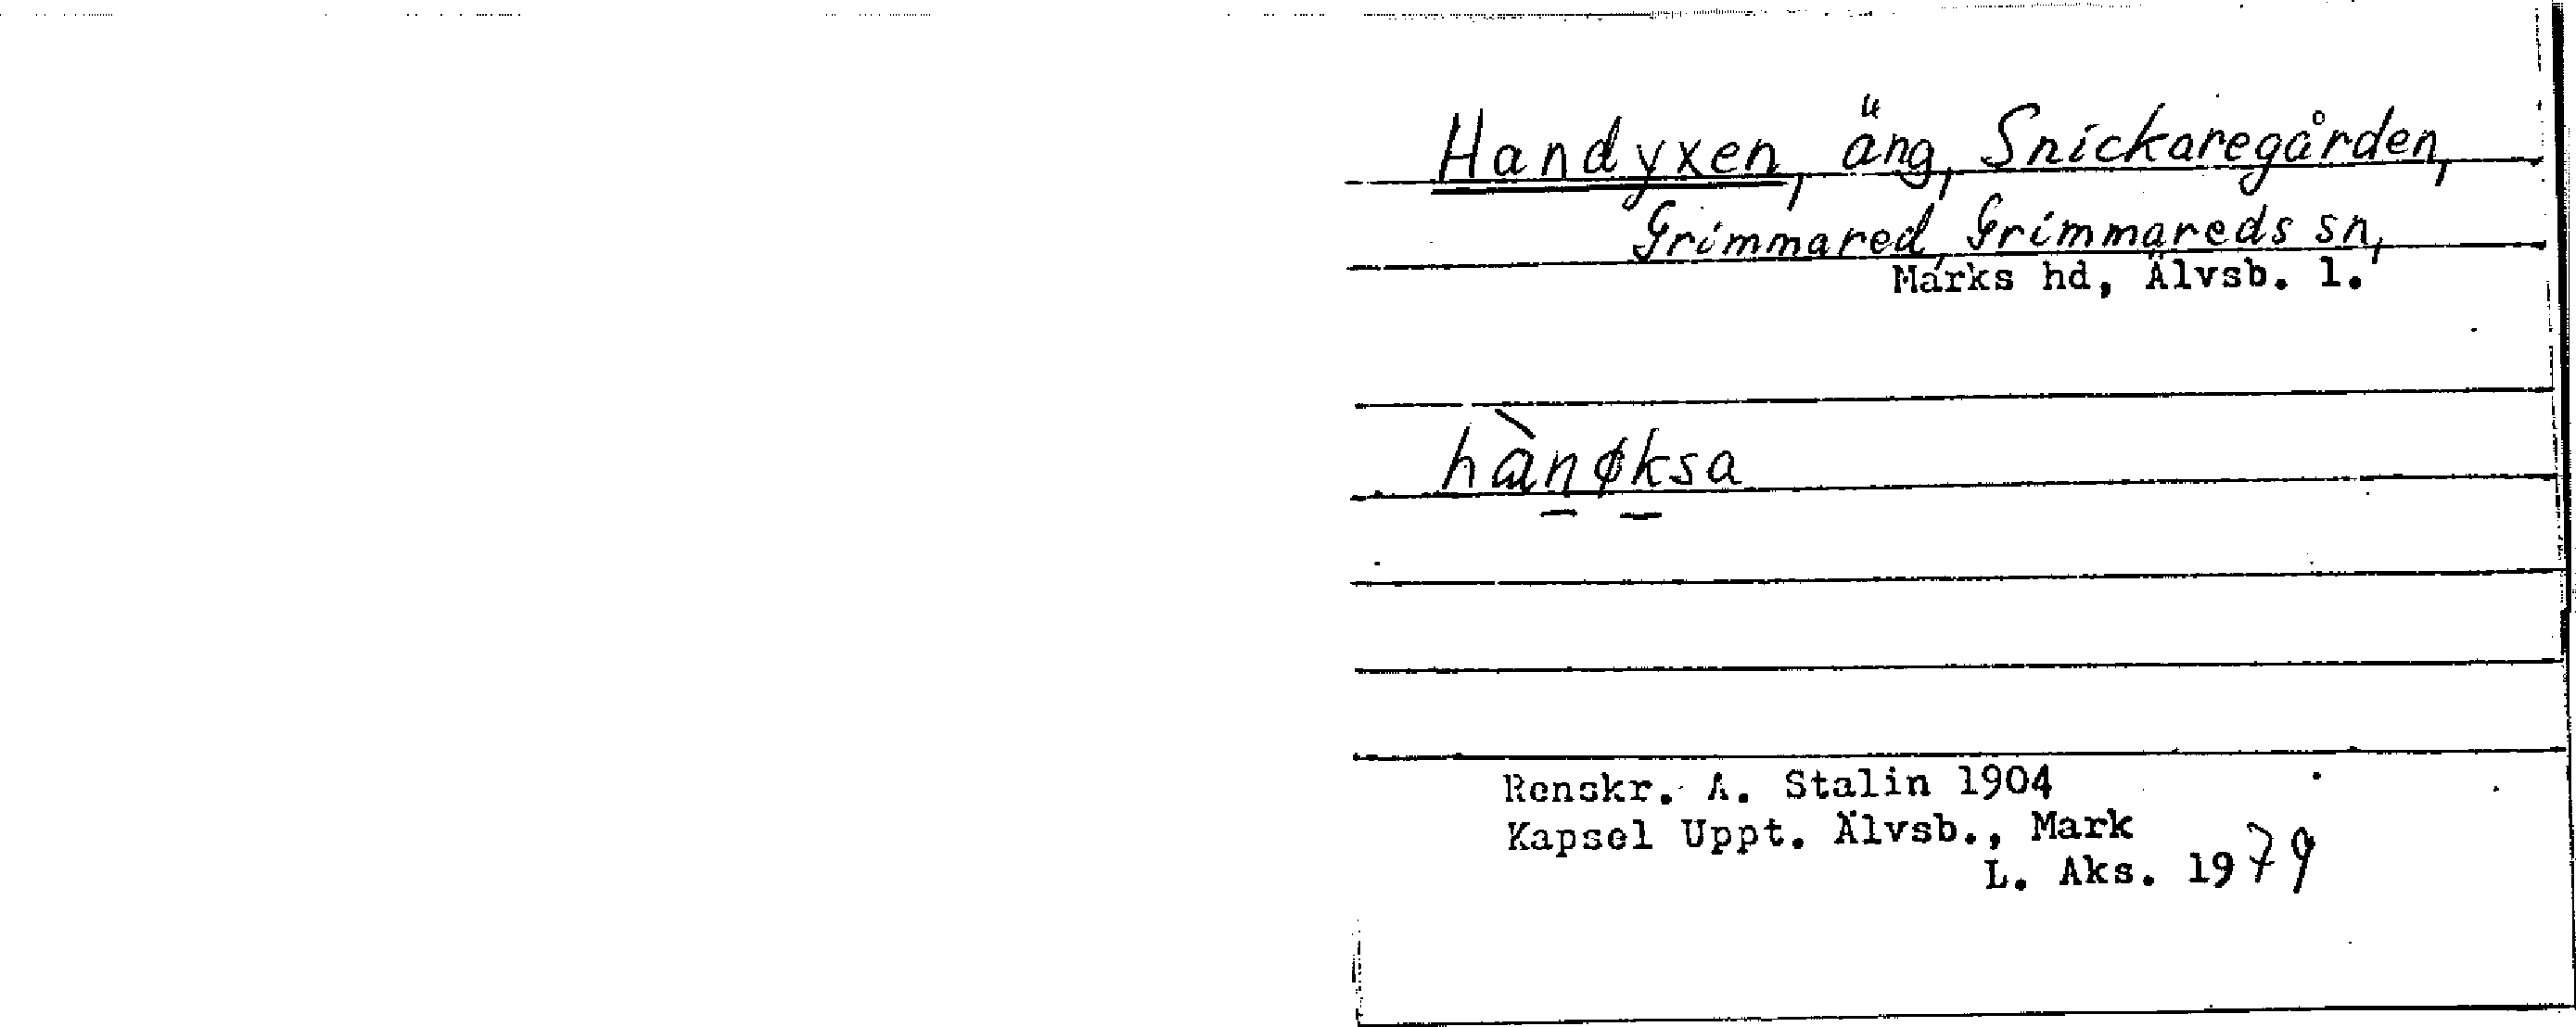 Handyxen, äng, Snickaregården,
Grimmared, Grimmareds sn,
Marks hd, Älvsb. l.
hànøksa
Renskr. A. Stalin 1904
Kapsel Uppt. Älvsb., Mark
L. Aks. 1979